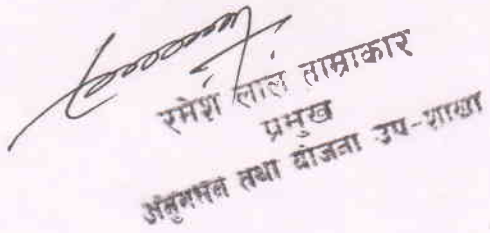 रमेश लाल ताम्राकार
प्रमुख
अनुगमन तथा योजना उप-शाखा